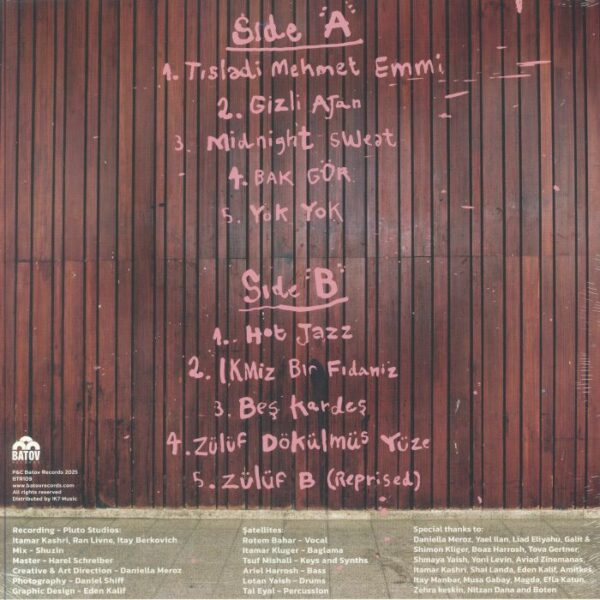 Side "A"
1. Tısladi Mehmet Emmi
2. Gizli Ajan
3. Midnight sweat
4. BAK GÖR
5. YOK YOK
Side "B"
1. Hot Jazz
2. IKMiz Bir Fidaniz
3. Beş Kardeş
4. Zülüf Dökülmüş Yüze
5. Zülüf B (Reprised)
BATOV
P&C Batov Records 2025
BTR109
www.batovrecords.com
All rights reserved
Distributed by !K7 Music
Recording - Pluto Studios:
Itamar Kashri, Ran Livne, Itay Berkovich
Mix - Shuzin
Master - Harel Schreiber
Creative & Art Direction - Daniella Meroz
Photography - Daniel Shiff
Graphic Design - Eden Kalif
Satellites:
Rotem Bahar - Vocal
Itamar Kluger - Baglama
Tsuf Mishali - Keys and Synths
Ariel Harrosh - Bass
Lotan Yaish - Drums
Tal Eyal - Percussion
Special thanks to:
Daniella Meroz, Yael Ilan, Liad Eliyahu, Galit &
Shimon Kliger, Boaz Harrosh, Tova Gertner,
Shmaya Yaish, Yoni Levin, Aviad Zinemanas,
Itamar Kashri, Shai Landa, Eden Kalif, Amitkes,
Itay Manbar, Musa Gabay, Magda, Efia Katun,
Zehra keskin, Nitzan Dana and Boten